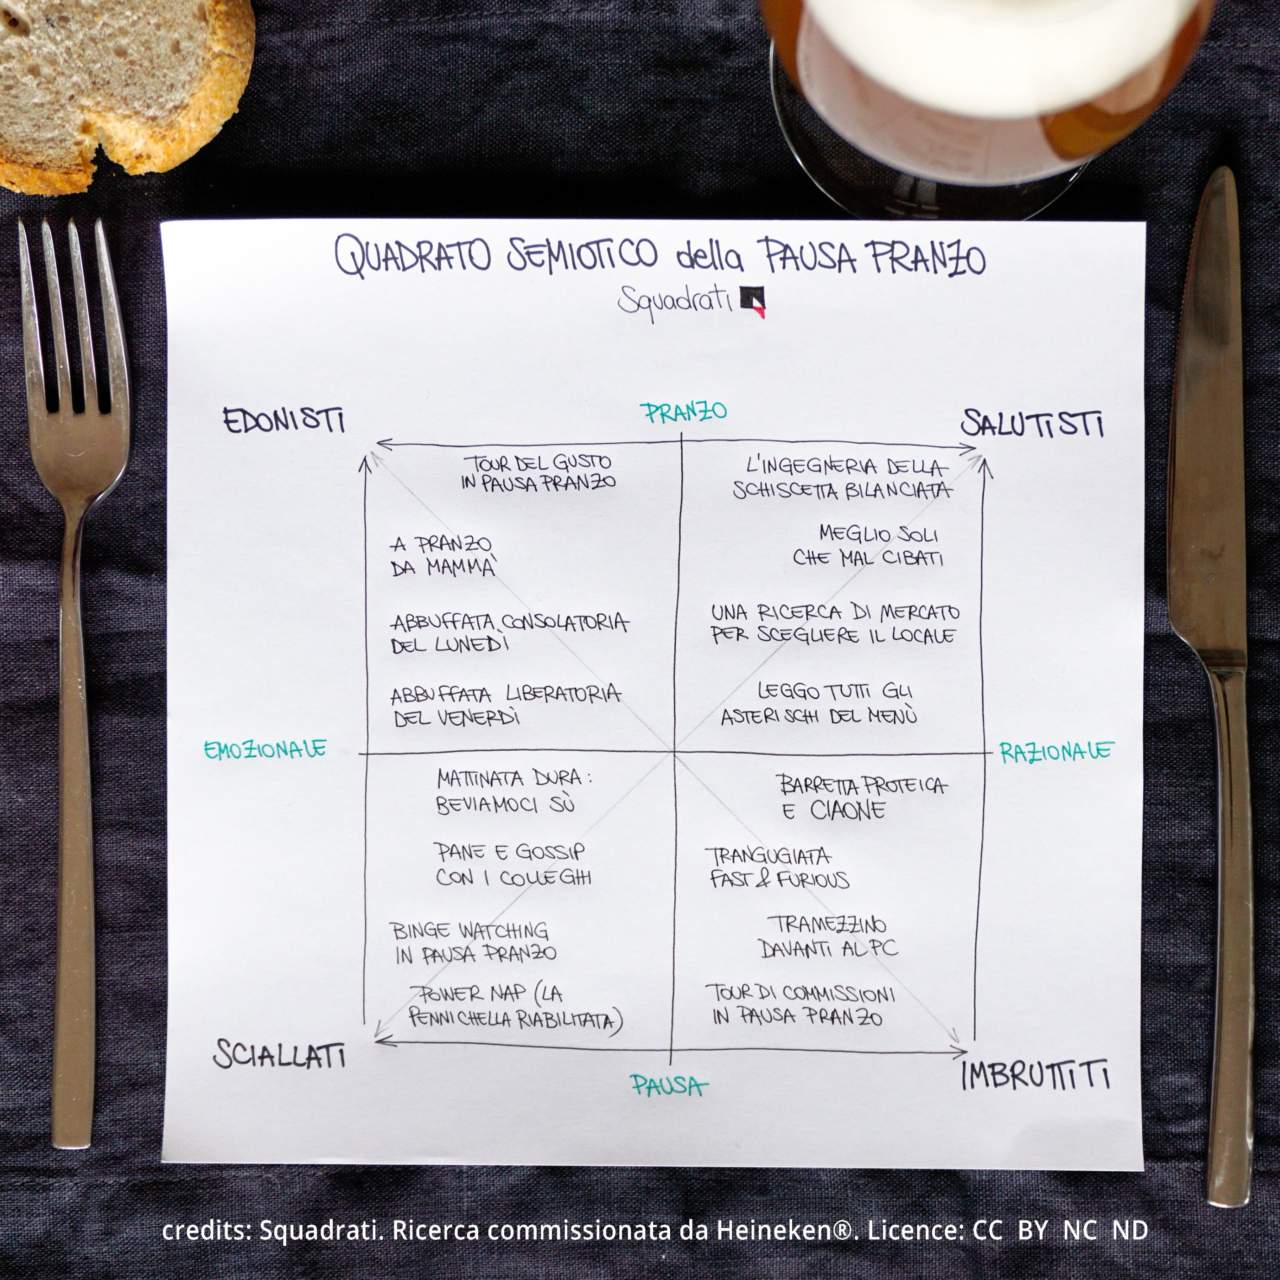 QUADRATO SEMIOTICO della PAUSA PRANZO
Squadrati
PRANZO
EDONISTI
SALUTISTI
TOUR DEL GUSTO
IN PAUSA PRANZO
A PRANZO
DA MAMMÀ
ABBUFFATA CONSOLATORIA
DEL LUNEDÌ
ABBUFFATA LIBERATORIA
DEL VENERDÌ
L'INGEGNERIA DELLA
SCHISCETTA BILANCIATA
MEGLIO SOLI
CHE MAL CIBATI
UNA RICERCA DI MERCATO
PER SCEGLIERE IL LOCALE
LEGGO TUTTI GLI
ASTERISCHI DEL MENÙ
EMOZIONALE
RAZIONALE
MATTINATA DURA:
BEVIAMOCI SÙ
PANE E GOSSIP
CON I COLLEGHI
BINGE WATCHING
IN PAUSA PRANZO
POWER NAP (LA
PENNICHELLA RIABILITATA)
BARRETTA PROTEICA
E CIAONE
TRANGUGIATA
FAST & FURIOUS
TRAMEZZINO
DAVANTI AL PC
TOUR DI COMMISSIONI
IN PAUSA PRANZO
SCIALLATI
IMBRUTTITI
PAUSA
credits: Squadrati. Ricerca commissionata da Heineken®. Licence: CC BY NC ND